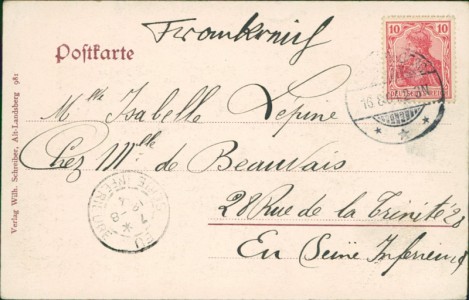 Frankreich
Postkarte
10 10
DEUTSCHES REICH
Mlle Isabelle Lepine
Chez Mlle de Beauvais
28 Rue de la Trinité 28
Eu Seine Inferieure
EU
SEINE INFERRE
Verlag Wilh. Schreiber, Alt-Landsberg 981